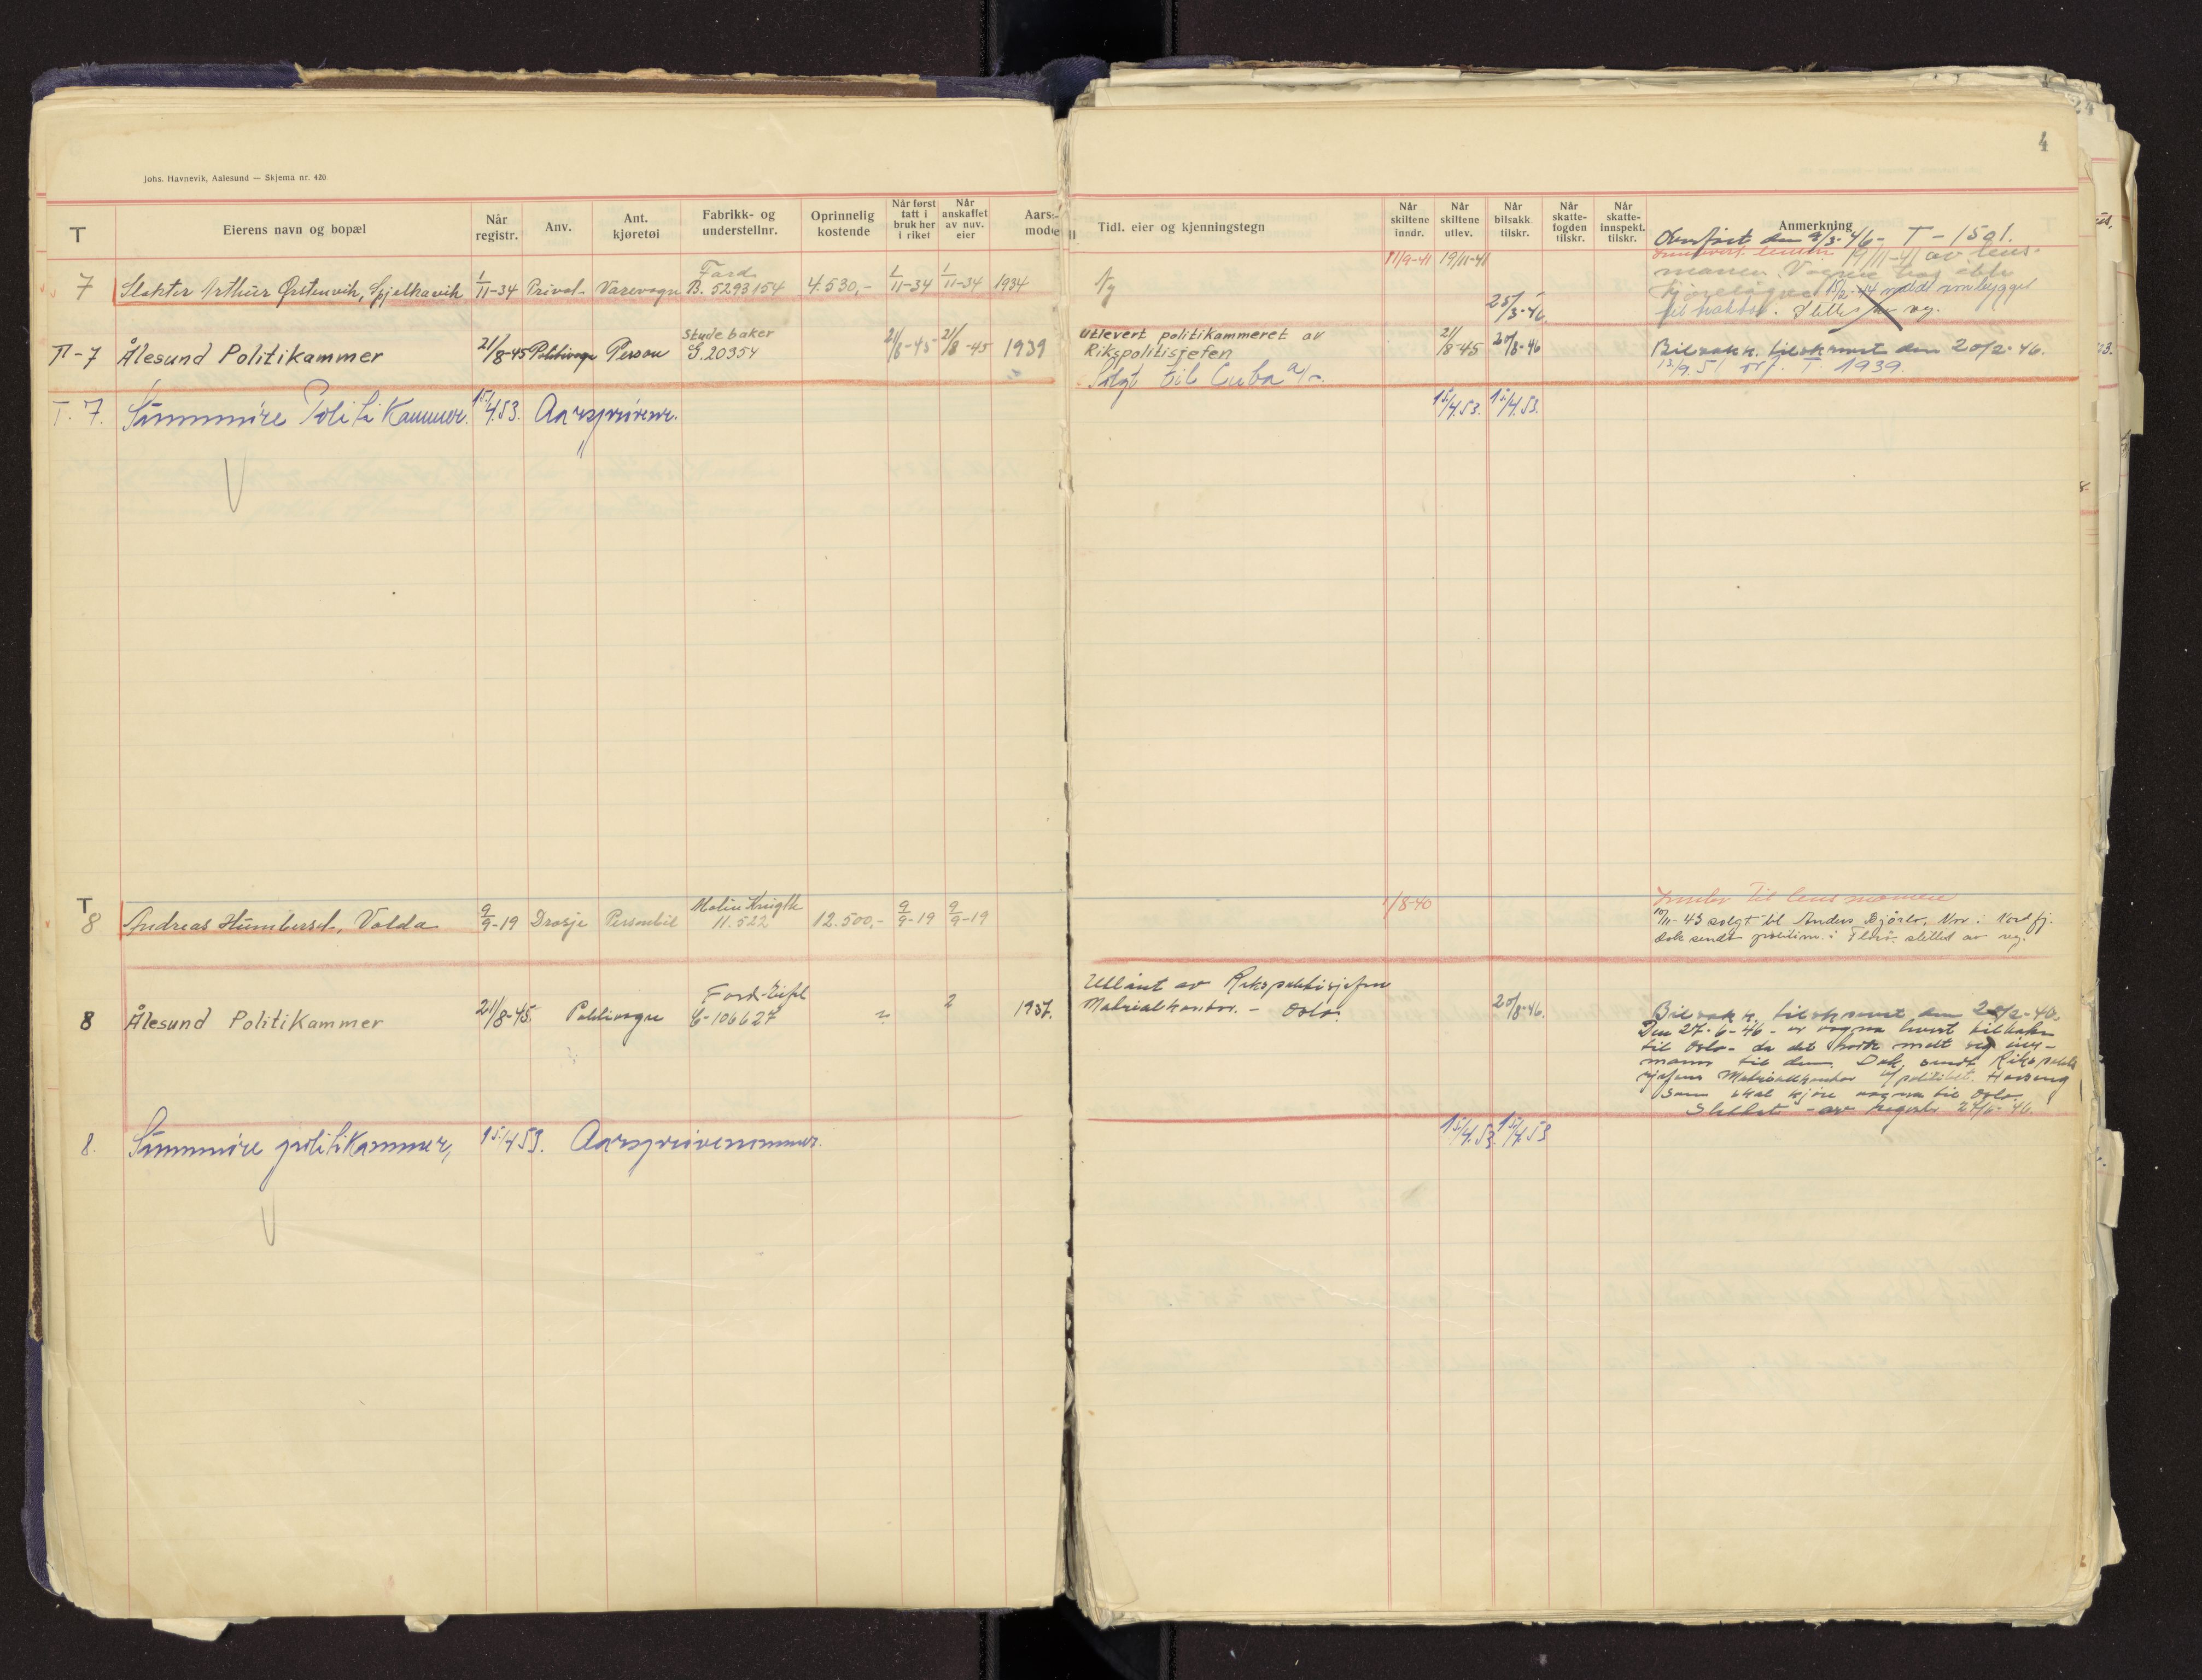 4
Johs. Havnevik, Aalesund — Skjema nr. 420
T
Eierens navn og bopæl
Når registr.
Anv.
Ant. kjøretøi
Fabrikk- og understellnr.
Oprinnelig kostende
Når først tatt i bruk her i riket
Når anskaffet av nuv. eier
Aars- mode
Tidl. eier og kjenningstegn
Når skiltene inndr.
Når skiltene utlev.
Når bilsakk. tilskr.
Når skatte- fogden tilskr.
Når skatte- innspekt. tilskr.
Anmerkning
Overført den 9/3-46- T-1591.
7 Slakter Arthur Ørstenvik, Spjelkavik 1/11-34 Privat Varevogn Ford B. 5293154 4.530,- 1/11-34 1/11-34 1934 Ny 11/9-41 19/11-41 25/3-46
19/11-41 av lens-
mannen. Vognen har ikke
kjøreløyve 15/2-44 meldt ombygget
til traktor. Slettes av reg.
T-7 Ålesund Politikammer 21/8-45 Politivogn Person Studebaker G. 20354 21/8-45 21/8-45 1939
Utlevert politikammeret av
Rikspolitisjefen
21/8-45 20/8-46 Bilsakk. tilskrevet den 20/2-46.
Solgt til Cuba A/S.
13/9.51 T. 1939.
T. 7. Sunnmöre Politi Kammer. 15/4.53. Aarsprövenr. 15/4.53. 15/4.53.
T
8 Andreas Humberset, Volda 9/9-19 Drosje Personbil 11.522 12.500,- 9/9-19 9/9-19 1/8-40
til lensmannen
10/11-43 solgt til Anders Bjørlo, Nor i Nordfj.
Dok sendt politim. i Florø. slettet av reg.
8 Ålesund Politikammer 21/8-45. Politivogn Ford-Eifel C-106627 1937.
Utlånt av Rikspolitisjefen
Materialkontor. - Oslo.
20/8-46. Bilsakk. tilskrevet den
Den 27-6-46- er vogna levert tilbake
til Oslo- da det hadde meldt seg eier-
mann til den. Dok. sendt Rikspoliti
sjefens Materialkontor v/ politibet.
som skal kjøre vogna til Oslo.
Slettet - av register 27/6-46.
8. Sunnmöre politikammer, 15/4 53. Aarsprövenummer. 15/4.53. 15/4.53